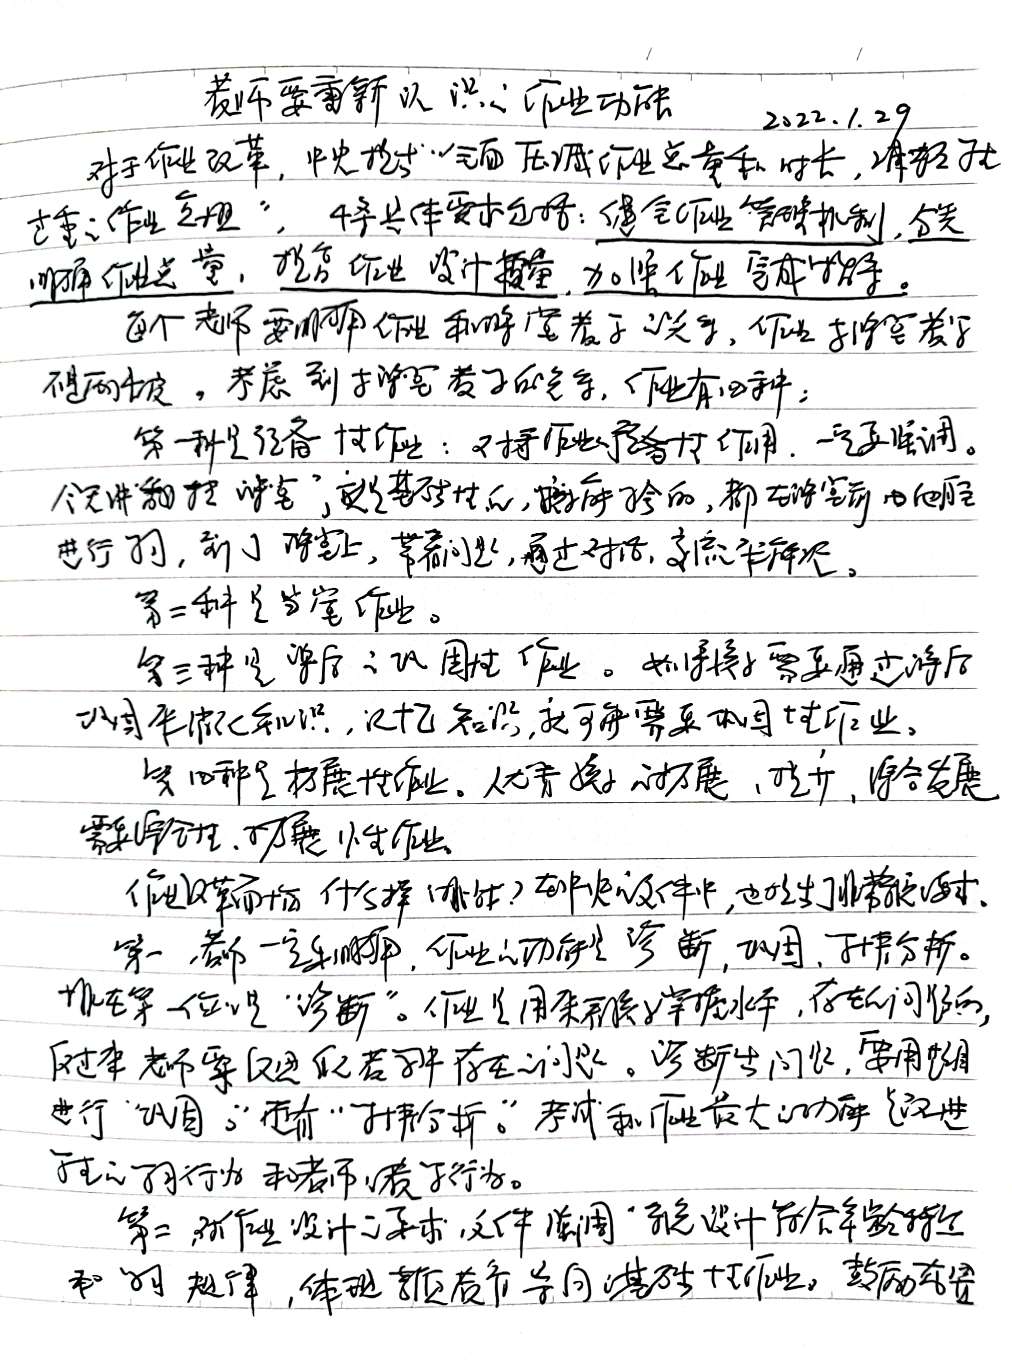 教师要重新认识之作业功能
2022.1.29
对于作业改革，中央提出“全面压减作业总量和时长，减轻学生
过重之作业负担”，4条具体要求包括：健全作业管理机制，分类
明确作业总量，提高作业设计质量，加强作业完成指导。
每个老师要明确作业和课堂教学之关系，作业与课堂教学
考虑到与课堂教学的关系，作业有四种：
第一种是预备性作业：对待作业预备性作用，一定要强调。
今天讲“翻转课堂”，就是基础性的，都在课堂前由他自己
进行学习，到了课堂上，带着问题，通过对话、交流来解决。
第二种是当堂作业。
第三种是课后之巩固性作业。如果孩子需要通过课后
巩固来消化知识，记忆知识，就可能需要巩固性作业。
第四种是拓展性作业。优秀孩子之拓展、提升、综合发展
需要综合性、拓展性作业。
作业改革需要什么样功能？在中央之文件中，也提出了非常明确要求。
第一，老师一定要明确，作业之功能是诊断，巩固，学情分析。
排在第一位之是“诊断”。作业是用来看孩子掌握水平，存在之问题的，
反过来老师要反思自己教学中存在之问题。诊断出问题，要用作业
进行“巩固”；还有“学情分析”。考试和作业最大之功能是改进
学生之学习行为和老师之教学行为。
第二，对作业设计之要求，文件强调“系统设计符合年龄特点
和学习规律，体现素质教育导向之基础性作业。鼓励布置